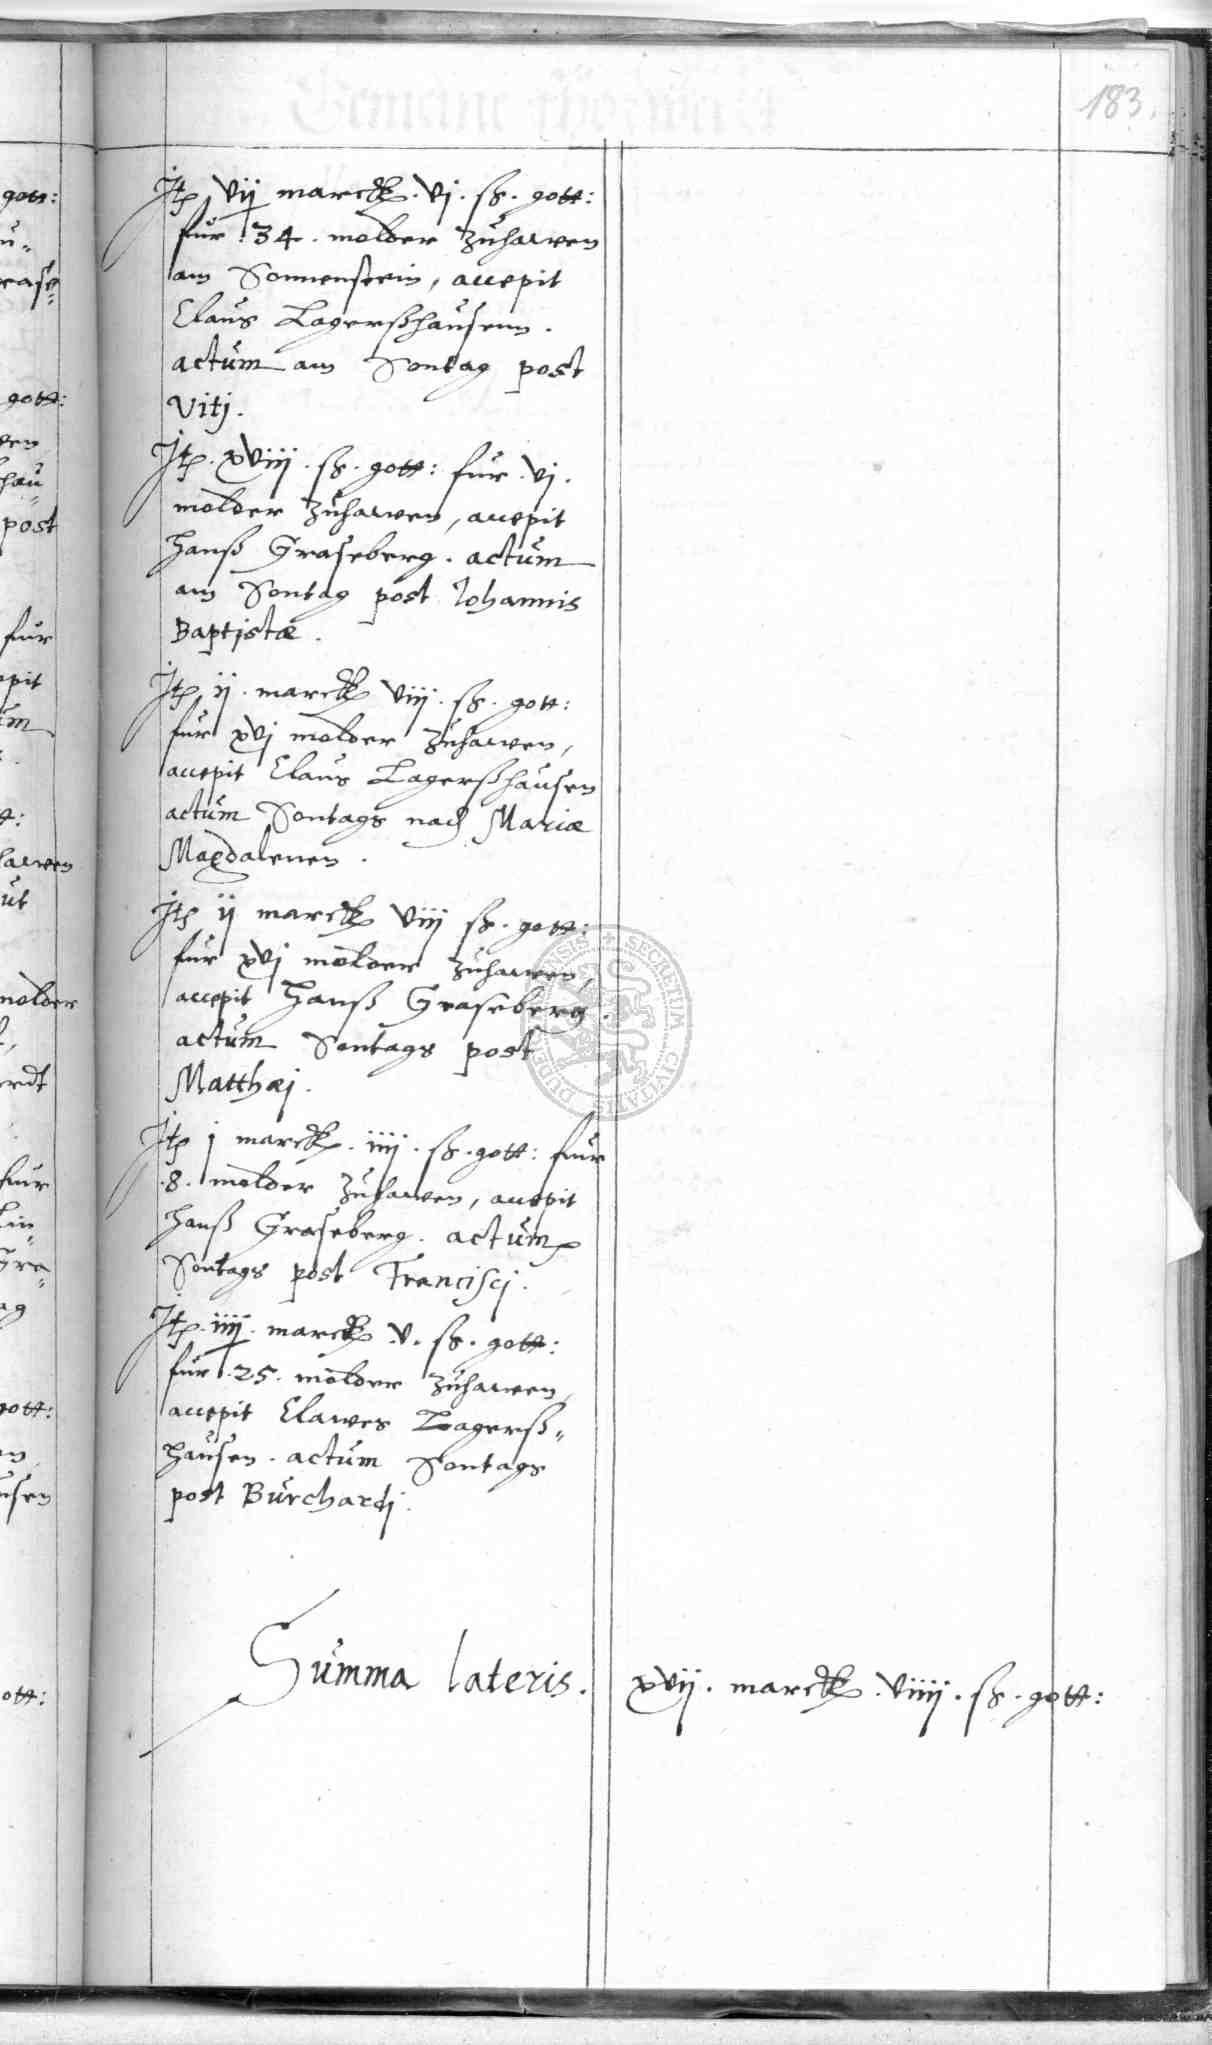 183.
Jtem vij marck. vj. ß. gott:
fur. 34. molder zuhawen
am Sonnenstein, accepit
Claus Lagerßhausenn.
actum am Sontag post
Vitj.
Jtem. xviij. ß. gott: fur. vj.
molder zuhawen, accepit
Hanß Graseberg. actum
am Sontag post Iohannis
Baptistæ.
Jtem ij. marck viij. ß. gott:
fur xvj molder zuhawen,
accepit Claus Lagerßhausen
actum Sontags nach Mariæ
Magdalenen.
Jtem ij marck viij ß. gott:
fur xvj molder zuhawen,
accepit Hanß Graseberg.
actum Sontags post
Matthæj.
Jtem j marck. iiij. ß. gott: fur
.8. molder zuhawen, accepit
Hanß Graseberg. actum
Sontags post Francisci.
Jtem. iiij. marck v. ß. gott:
fur. 25. molder zuhawen,
accepit Clawes Lagerß„
hausen. actum Sontags
post Burchardj.
Summa lateris. xvij. marck. viiij. ß. gott:
SECRETUM CIVITATIS